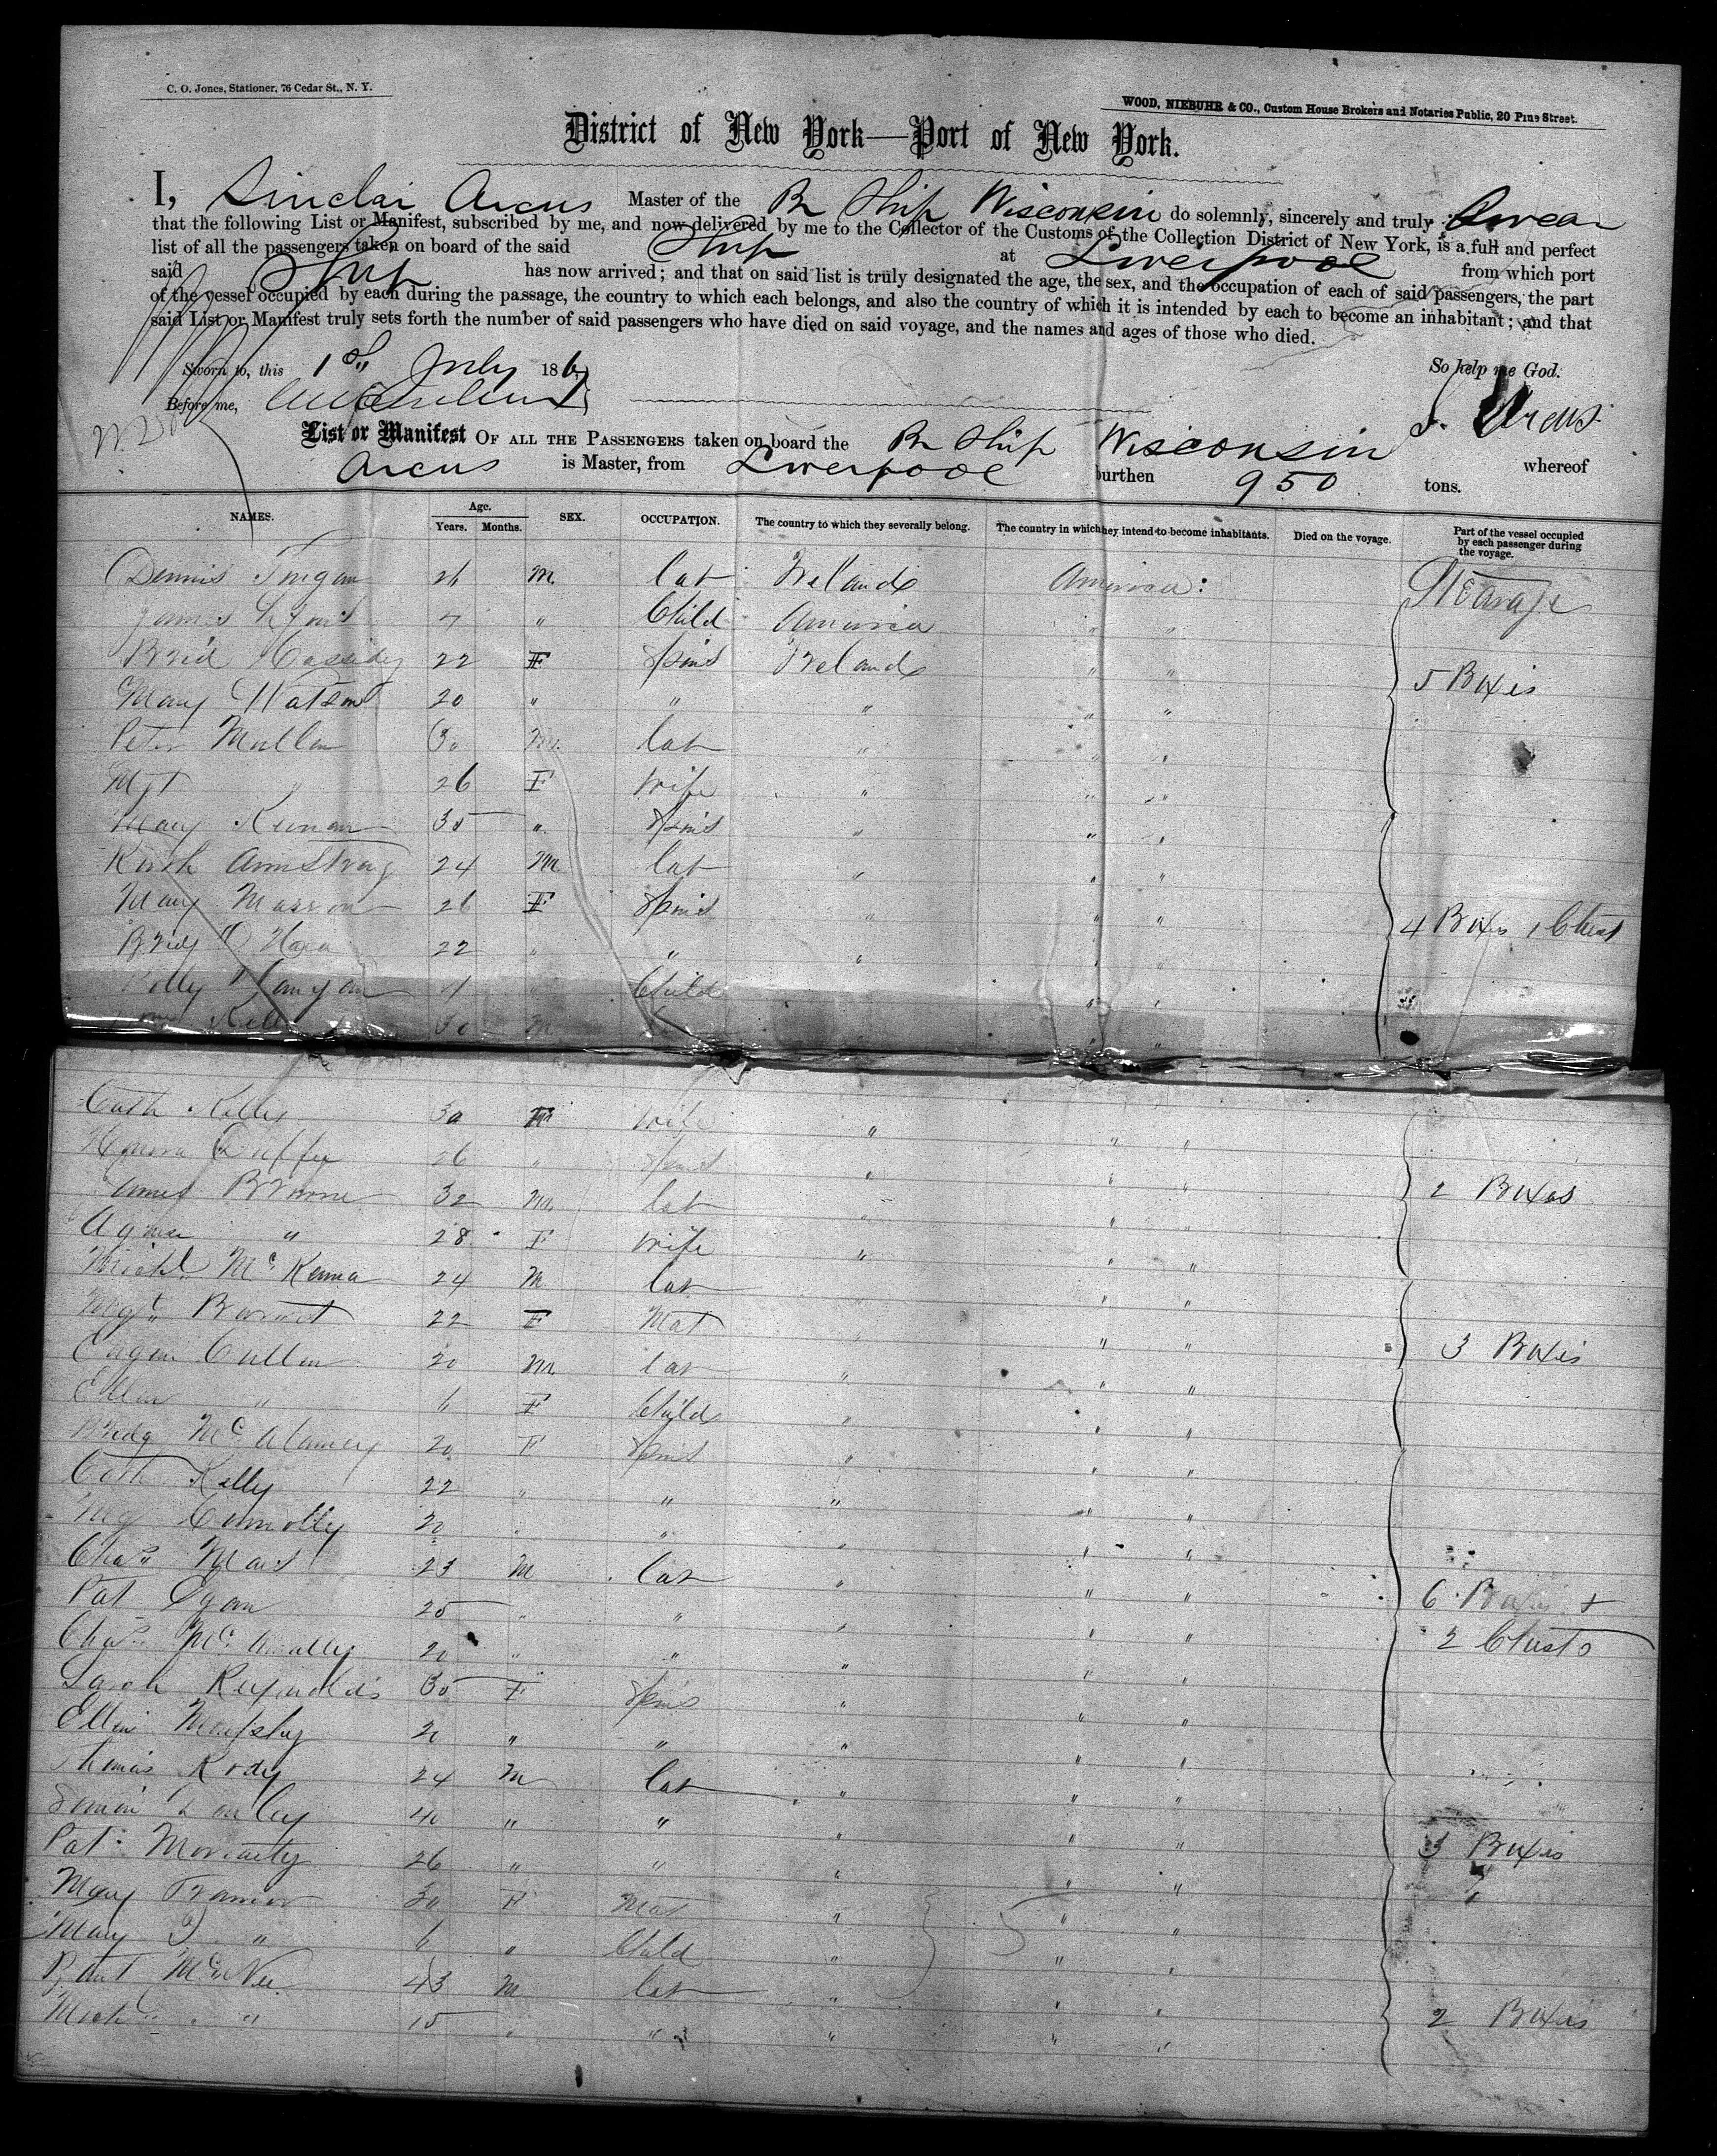 C. O. Jones, Stationer, 76 Cedar St., N. Y.
WOOD, NIEBUHR & CO., Custom House Brokers and Notaries Public, 20 Pine Street.
District of New York—Port of New York.
I, Sinclair Arcus Master of the Br Ship Wisconsin do solemnly, sincerely and truly Swear
that the following List or Manifest, subscribed by me, and now delivered by me to the Collector of the Customs of the Collection District of New York, is a full and perfect
list of all the passengers taken on board of the said Ship at Liverpool from which port
said Ship has now arrived; and that on said list is truly designated the age, the sex, and the occupation of each of said passengers, the part
of the vessel occupied by each during the passage, the country to which each belongs, and also the country of which it is intended by each to become an inhabitant; and that
said List or Manifest truly sets forth the number of said passengers who have died on said voyage, and the names and ages of those who died.
Sworn to, this 1st July 186 So help me God.
Before me, S. Arcus
List or Manifest OF ALL THE PASSENGERS taken on board the Br Ship Wisconsin whereof
Arcus is Master, from Liverpool burthen 950 tons.
NAMES. Age. Years. Months. SEX. OCCUPATION. The country to which they severally belong. The country in which they intend to become inhabitants. Died on the voyage. Part of the vessel occupied by each passenger during the voyage.
Dennis 26 M Lab Ireland America: Stearage
James 7 " Child America " "
Brid Cassidy 22 F Spins Ireland " " 5 Boxes
Mary Watson 20 " " " " "
Peter Mullen 30 M Lab " " "
Mgt " 26 F Wife " " "
Mary Keenan 35 " Spins " " "
Armstrong 24 M Lab " " "
Mary Marron 26 F Spins " " "
Bridg O'Hara 22 " " " " " 4 Boxes 1 Chest
Polly 4 " Child " "
Kelly 30 M " "
Cath Kelly 30 F Wife " " "
Honora Duffy 26 " Spins " " "
James Browne 32 M Lab " " " 2 Boxes
Agnes " 28 F Wife " " "
Michl McKenna 24 M Lab " " "
Mgt 22 F Mat " " "
Eugene Cullen 20 M Lab " " " 3 Boxes
Ellen " 6 F Child " " "
Bridg 20 F Spins " " "
Cath Kelly 22 " " " " "
Mg Connolly 20 " " " " "
Chas 23 M Lab " " "
Pat Egan 25 " " " " " 6 Boxes +
Chas McAnally 20 " " " " " 2 Chests
Sarah Reynolds 35 F Spins " " "
Ellen 20 " " " " "
Thomas Rody 24 M Lab " " "
40 " " " " "
Pat Moriarty 26 " " " " " 3 Boxes
Mary Trainor 30 F Mat " " "
Mary J " 6 " Child " " "
43 M Lab " " "
Mich " 15 " " " " " 2 Boxes